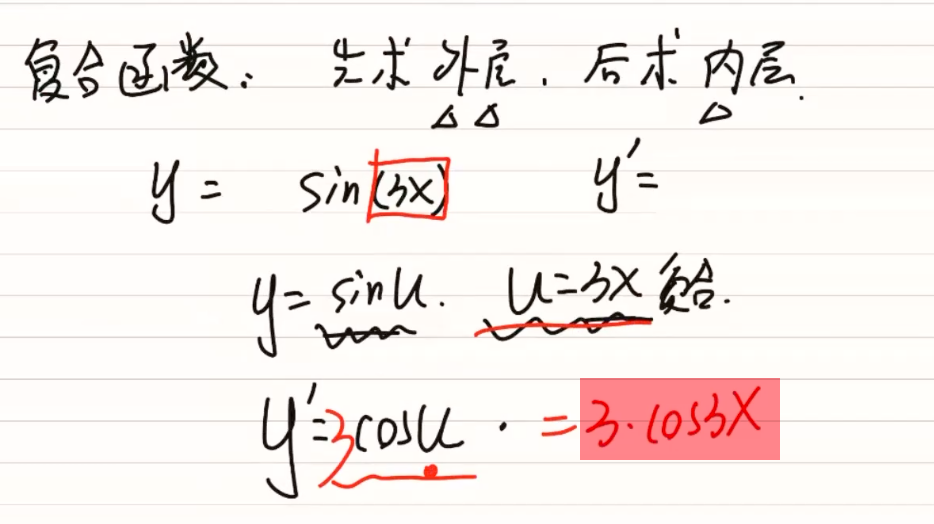 复合函数：先求外层．后求内层．
y = sin(3x) y′=
y=sinu. u=3x 复合.
y′=3cosu · =3·cos3x